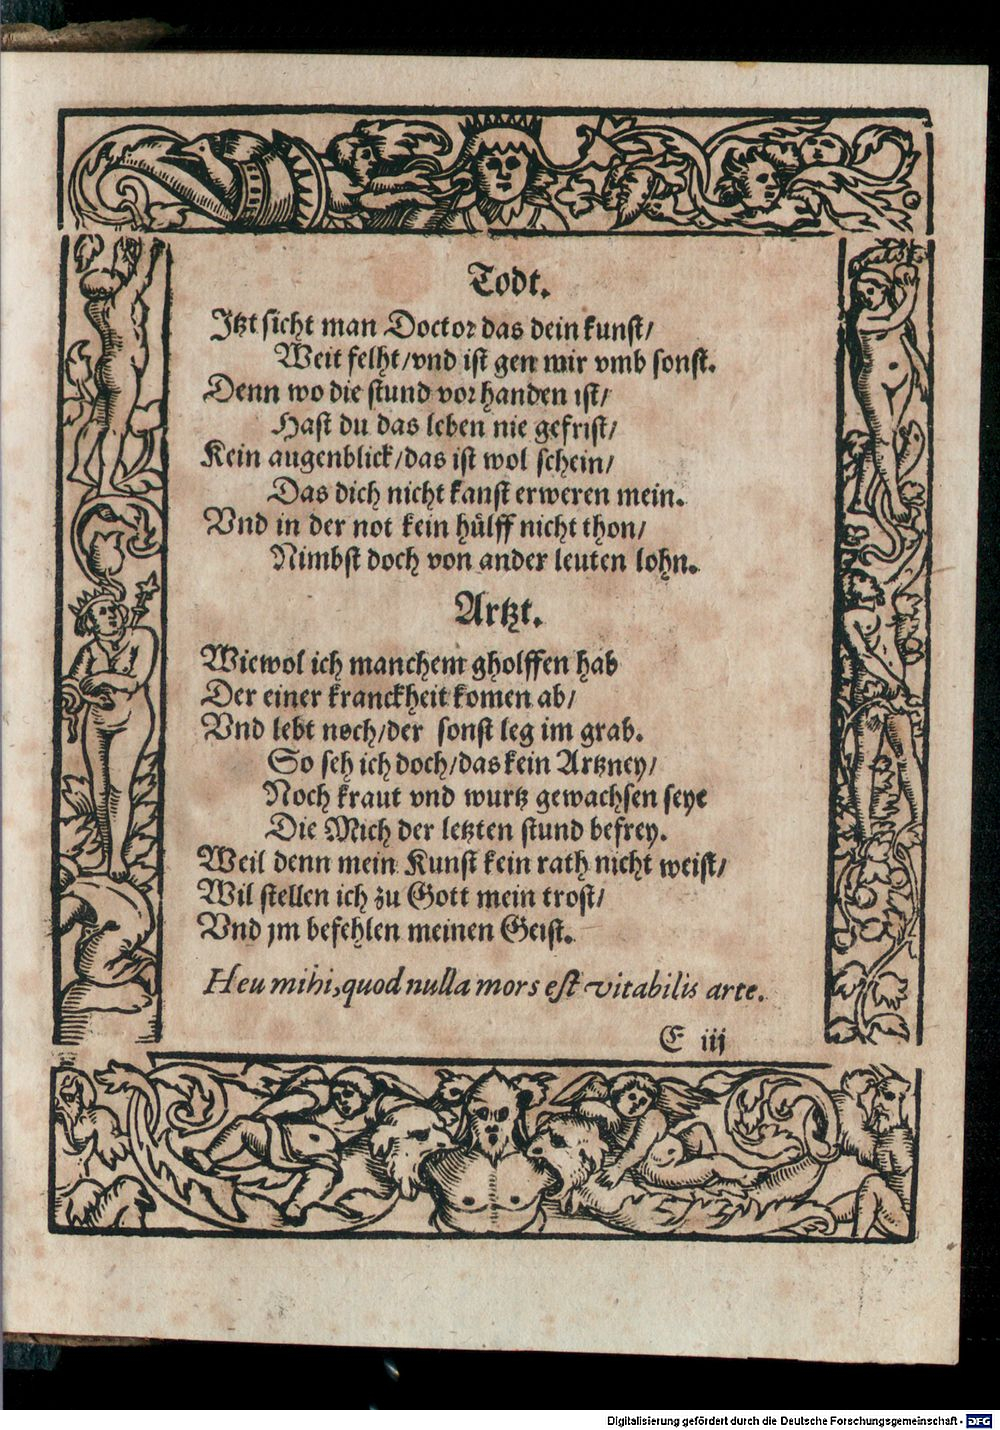 Todt.
Jtzt sicht man Doctor das dein kunst/
Weit felht/vnd ist gen mir vmb sonst.
Denn wo die stund vorhanden ist/
Hast du das leben nie gefrist/
Kein augenblick/das ist wol schein/
Das dich nicht kanst erweren mein.
Vnd in der not kein hülff nicht thon/
Nimbst doch von ander leuten lohn.
Artzt.
Wiewol ich manchem gholffen hab
Der einer kranckheit komen ab/
Vnd lebt noch/der sonst leg im grab.
So seh ich doch/das kein Artzney/
Noch kraut vnd wurtz gewachsen seye
Die Mich der letzten stund befrey.
Weil denn mein Kunst kein rath nicht weist/
Wil stellen ich zu Gott mein trost/
Vnd jm befehlen meinen Geist.
Heu mihi, quod nulla mors est vitabilis arte.
E iij
Digitalisierung gefördert durch die Deutsche Forschungsgemeinschaft - DFG